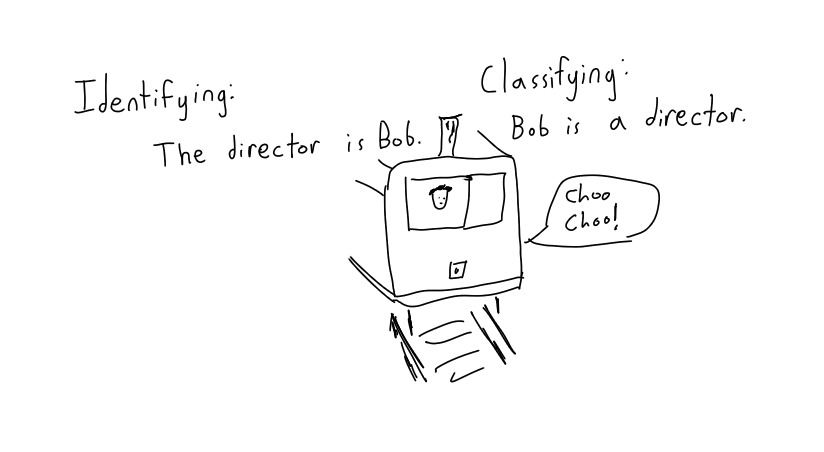 Identifying:
The director is Bob.
Classifying:
Bob is a director.
Choo
Choo!